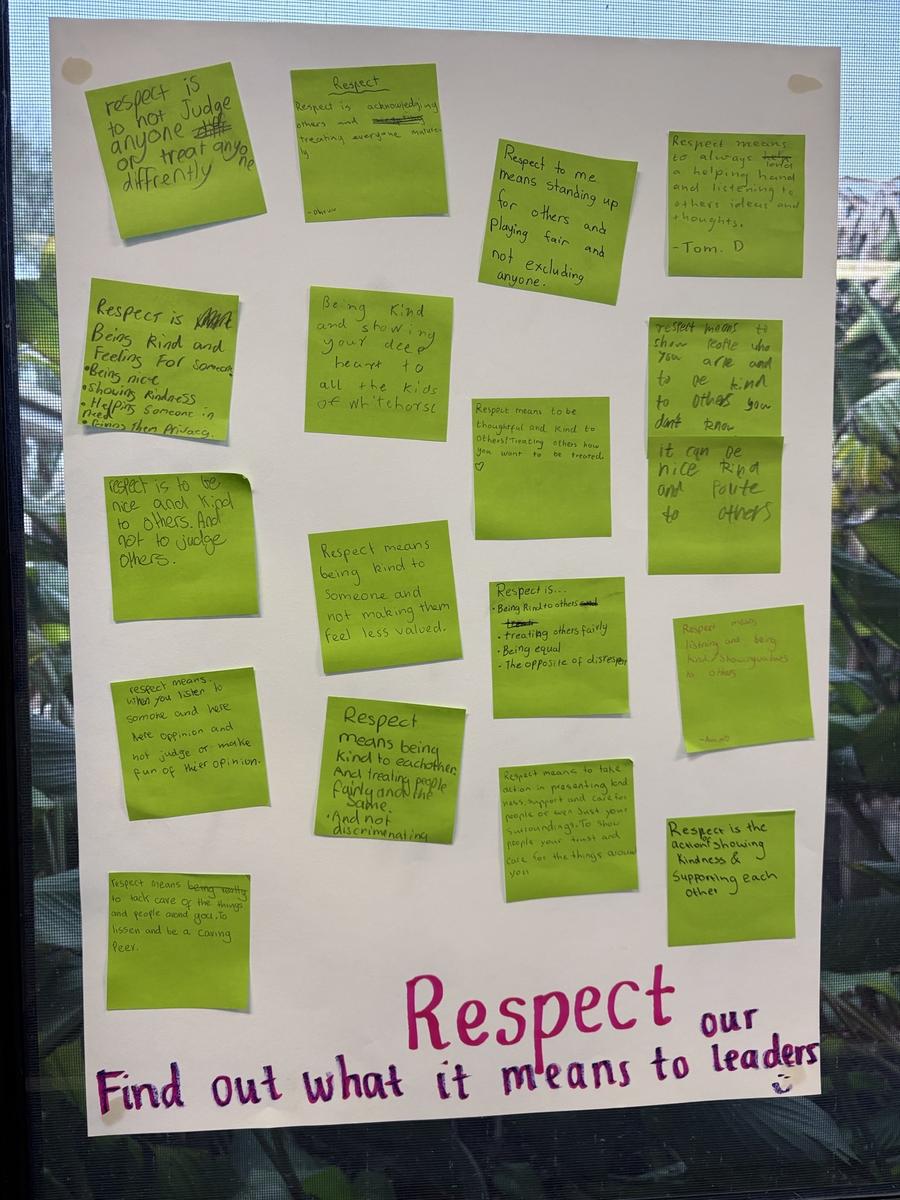 respect is
to not Judge
anyone
or treat anyo
ne
diffrently
Respect
Respect is acknowledging
others and
treating everyone mature-
ly.
Respect to me
means standing up
for others and
Playing fair and
not excluding
anyone.
Respect means
to always lend
a helping hand
and listening to
others ideas and
thoughts.
-Tom. D
Respect is
Being kind and
Feeling For someone.
•Being nice
•showing kindness
•Helping someone in
need
•Giving them Privacy.
Being kind
and showing
your deep
heart to
all the kids
of whitehorse
Respect means to be
thoughtful and kind to
others! Treating others how
you want to be treated.
respect means to
show people who
you are and
to be kind
to others you
don't know
it can be
nice kind
and Polite
to others
respect is to be
nice and kind
to others. And
not to judge
others.
Respect means
being kind to
someone and
not making them
feel less valued.
Respect is...
•Being kind to others
•treating others fairly
•Being equal
•The opposite of disrespect
Respect means
listning and being
kind. Showing values
to others
respect means.
when you listen to
somone and here
here oppinion and
not judge or make
fun of thier opinion.
Respect
means being
kind to eachother.
And treating people
fairly and the
same.
•And not
discriminating
Respect means to take
action in presenting kind
ness, support and care for
people or even Just your
surroundings. To show
people your trust and
care for the things around
you
Respect is the
action of showing
kindness &
Supporting each
other
respect means being really
to tack care of the things
and people arond you. To
lissen and be a caring
Peer.
Respect
Find out what it means to our leaders